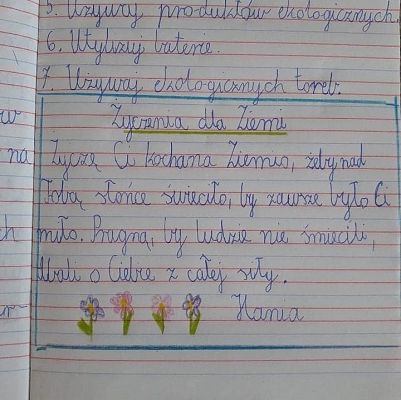 5. Używaj produktów ekologicznych.
6. Utylizuj baterie.
7. Używaj ekologicznych toreb.
Życzenia dla Ziemi
na Życzę Ci kochana Ziemio, żeby nad
Tobą słońce świeciło, by zawsze było Ci
miło. Pragnę, by ludzie nie śmiecili,
dbali o Ciebie z całej siły.
Hania